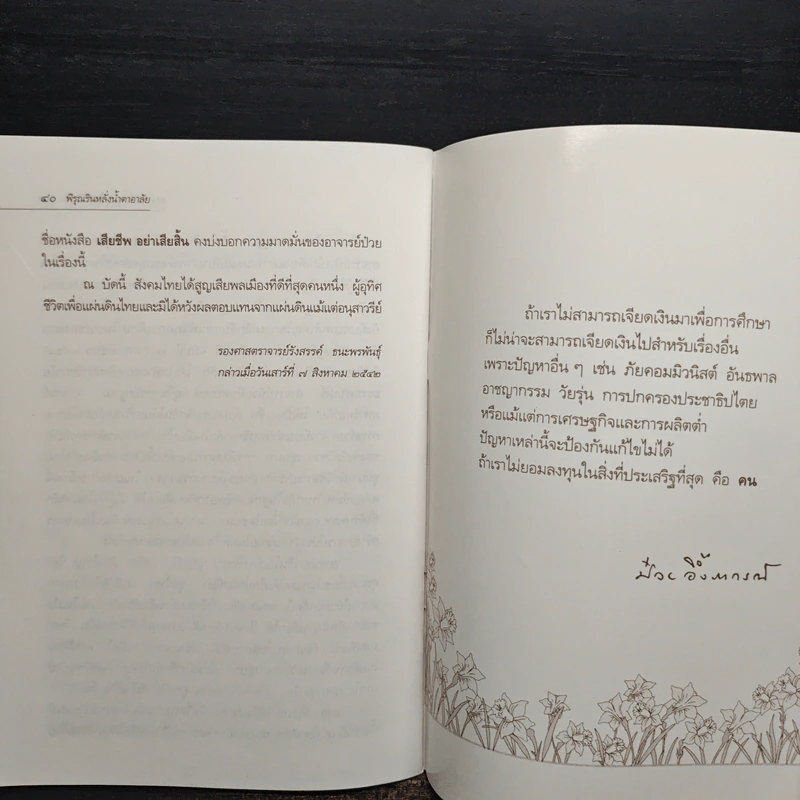 ๔๐ พิรุณรินหลั่งน้ำตาอาลัย
ชื่อหนังสือ เสียชีพ อย่าเสียสิ้น คงบ่งบอกความมาดมั่นของอาจารย์ป๋วย
ในเรื่องนี้
ณ บัดนี้ สังคมไทยได้สูญเสียพลเมืองที่ดีที่สุดคนหนึ่ง ผู้อุทิศ
ชีวิตเพื่อแผ่นดินไทยและมิได้หวังผลตอบแทนจากแผ่นดินแม้แต่อนุสาวรีย์
รองศาสตราจารย์รังสรรค์ ธนะพรพันธุ์
กล่าวเมื่อวันเสาร์ที่ ๗ สิงหาคม ๒๕๔๒
ถ้าเราไม่สามารถเจียดเงินมาเพื่อการศึกษา
ก็ไม่น่าจะสามารถเจียดเงินไปสำหรับเรื่องอื่น
เพราะปัญหาอื่น ๆ เช่น ภัยคอมมิวนิสต์ อันธพาล
อาชญากรรม วัยรุ่น การปกครองประชาธิปไตย
หรือแม้แต่การเศรษฐกิจและการผลิตต่ำ
ปัญหาเหล่านี้จะป้องกันแก้ไขไม่ได้
ถ้าเราไม่ยอมลงทุนในสิ่งที่ประเสริฐที่สุด คือ คน
ป๋วย อึ๊งภากรณ์